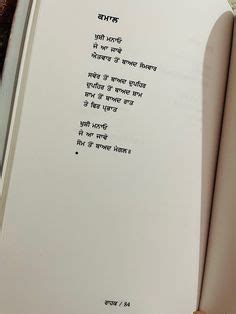 ਕਮਾਲ
ਖੁਸ਼ੀ ਮਨਾਓ
ਜੇ ਆ ਜਾਵੇ
ਐਤਵਾਰ ਤੋਂ ਬਾਅਦ ਸੋਮਵਾਰ
ਸਵੇਰ ਤੋਂ ਬਾਅਦ ਦੁਪਹਿਰ
ਦੁਪਹਿਰ ਤੋਂ ਬਾਅਦ ਸ਼ਾਮ
ਸ਼ਾਮ ਤੋਂ ਬਾਅਦ ਰਾਤ
ਤੇ ਫਿਰ ਪ੍ਰਭਾਤ
ਖੁਸ਼ੀ ਮਨਾਓ
ਜੇ ਆ ਜਾਵੇ
ਸੋਮ ਤੋਂ ਬਾਅਦ ਮੰਗਲ॥
/ 84